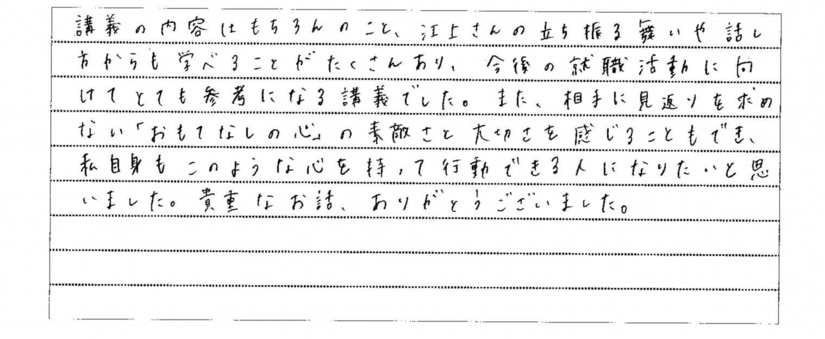 講義の内容はもちろんのこと、江上さんの立ち振る舞いや話し
方からも学べることがたくさんあり、今後の就職活動に向
けてとても参考になる講義でした。また、相手に見返りを求め
ない「おもてなしの心」の素敵さと大切さを感じることもでき、
私自身もこのような心を持って行動できる人になりたいと思
いました。貴重なお話、ありがとうございました。